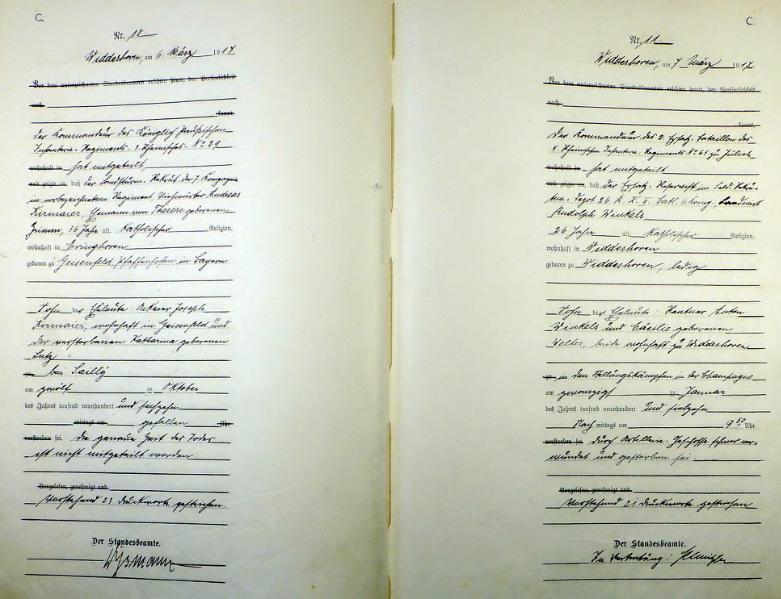 C.
Nr. 10
Widdershoven, am 6. März 1917
Vor dem unterzeichneten Standesbeamten erschien heute, der Persönlichkeit
nach
kannt,
Der Kommandeur des Königlich Preußischen
Infanterie-Regiments, 3. Rheinisches No 29
wohnhaft in hat mitgeteilt
und zeigte an, daß der Landsturm-Rekrut der 7. Kompagnie
in vorbezeichnetem Regiment Andreas
Kirmaier, Ehemann von Therese geborenen
Grimm, 36 Jahre alt, katholischer Religion,
wohnhaft in
geboren zu Geisenfeld, Pfaffenhofen in Bayern
Sohn der Eheleute Joseph
Kirmaier, wohnhaft in Geisenfeld und
der verstorbenen Katharina geborenen
Lutz
zu bei Sailly
am zwölf ten Oktober
des Jahres tausend neunhundert und sechzehn
mittags um gefallen Uhr
verstorben sei. Die genaue Zeit des Todes
ist nicht mitgeteilt worden
Vorgelesen, genehmigt und
Vorstehend 21 Druckworte gestrichen.
Der Standesbeamte.
C.
Nr. 11.
Widdershoven, am 7 März 1917
Vor dem unterzeichneten Standesbeamten erschien heute, der Persönlichkeit
nach
kannt,
Der Kommandeur des 2. Ersatz-Bataillon des
5. Rheinischen Infanterie-Regiments No 65 zu Jülich
wohnhaft in hat mitgeteilt
und zeigte an, daß der Ersatz-Reservist im Feld-Rekru-
ten-Depot Landwirt
Rudolph Winkels
26 Jahre alt, katholischer Religion,
wohnhaft in Widdershoven
geboren zu Widdershoven, ledig
Sohn der Eheleute: Rentner Anton
Winkels und Cäcilie geborenen
Welter, beide wohnhaft zu Widdershoven
zu in den Stellungskämpfen in der Champagne
am ten Januar
des Jahres tausend neunhundert und siebzehn
Nach mittags um 9 50 Uhr
verstorben sei durch Artillerie-Geschoß schwer ver-
wundet und gestorben sei
Vorgelesen, genehmigt und
Vorstehend 21 Druckworte gestrichen
Der Standesbeamte.
In Vertretung: